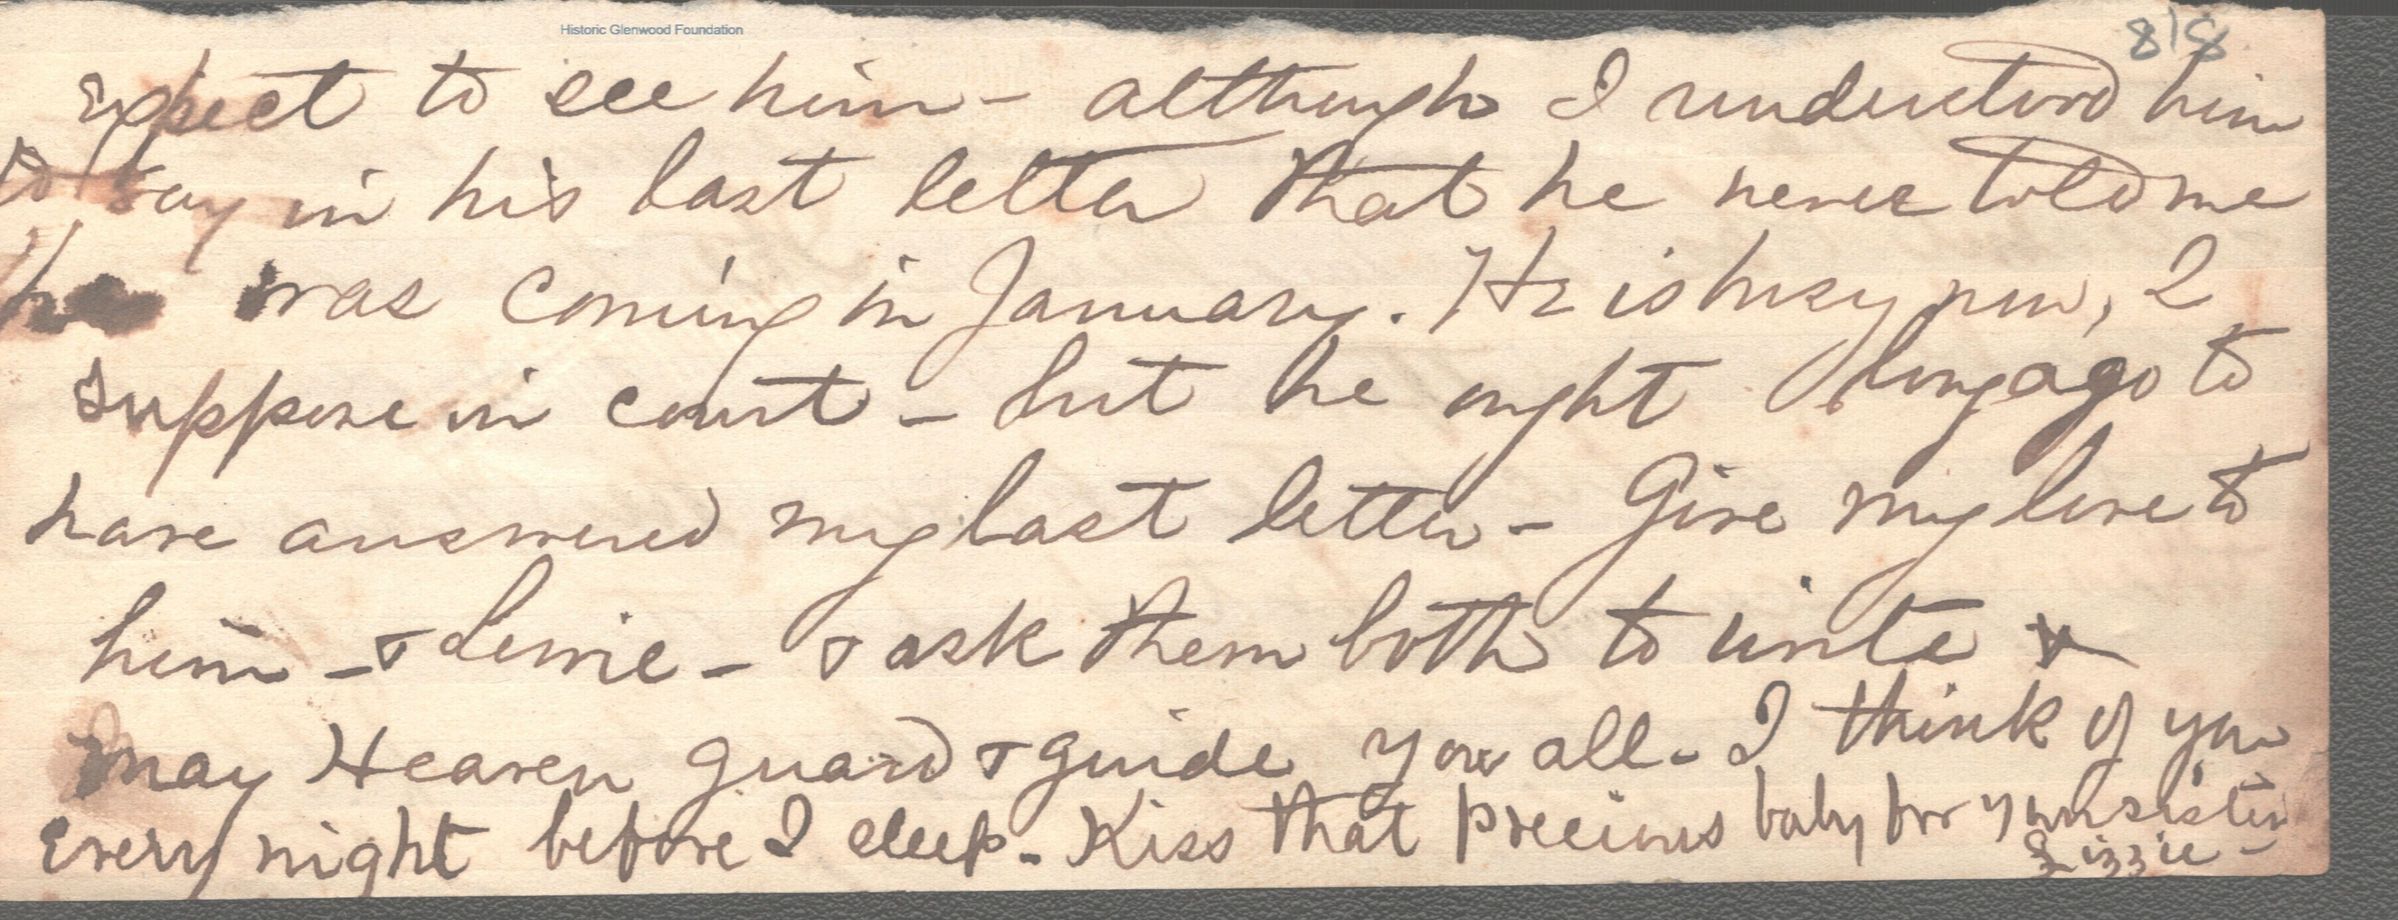 Historic Glenwood Foundation
8/8
Expect to see him - although I understood him
to say in his last letter that he never told me
he was coming in January. He is busy now, I
suppose in court - but he ought long ago to
have answered my last letter - Give my love to
him - & - & ask them both to write &
may Heaven guard & guide you all - I think of you
Every night before I sleep - Kiss that precious baby for your sister
Lizzie -